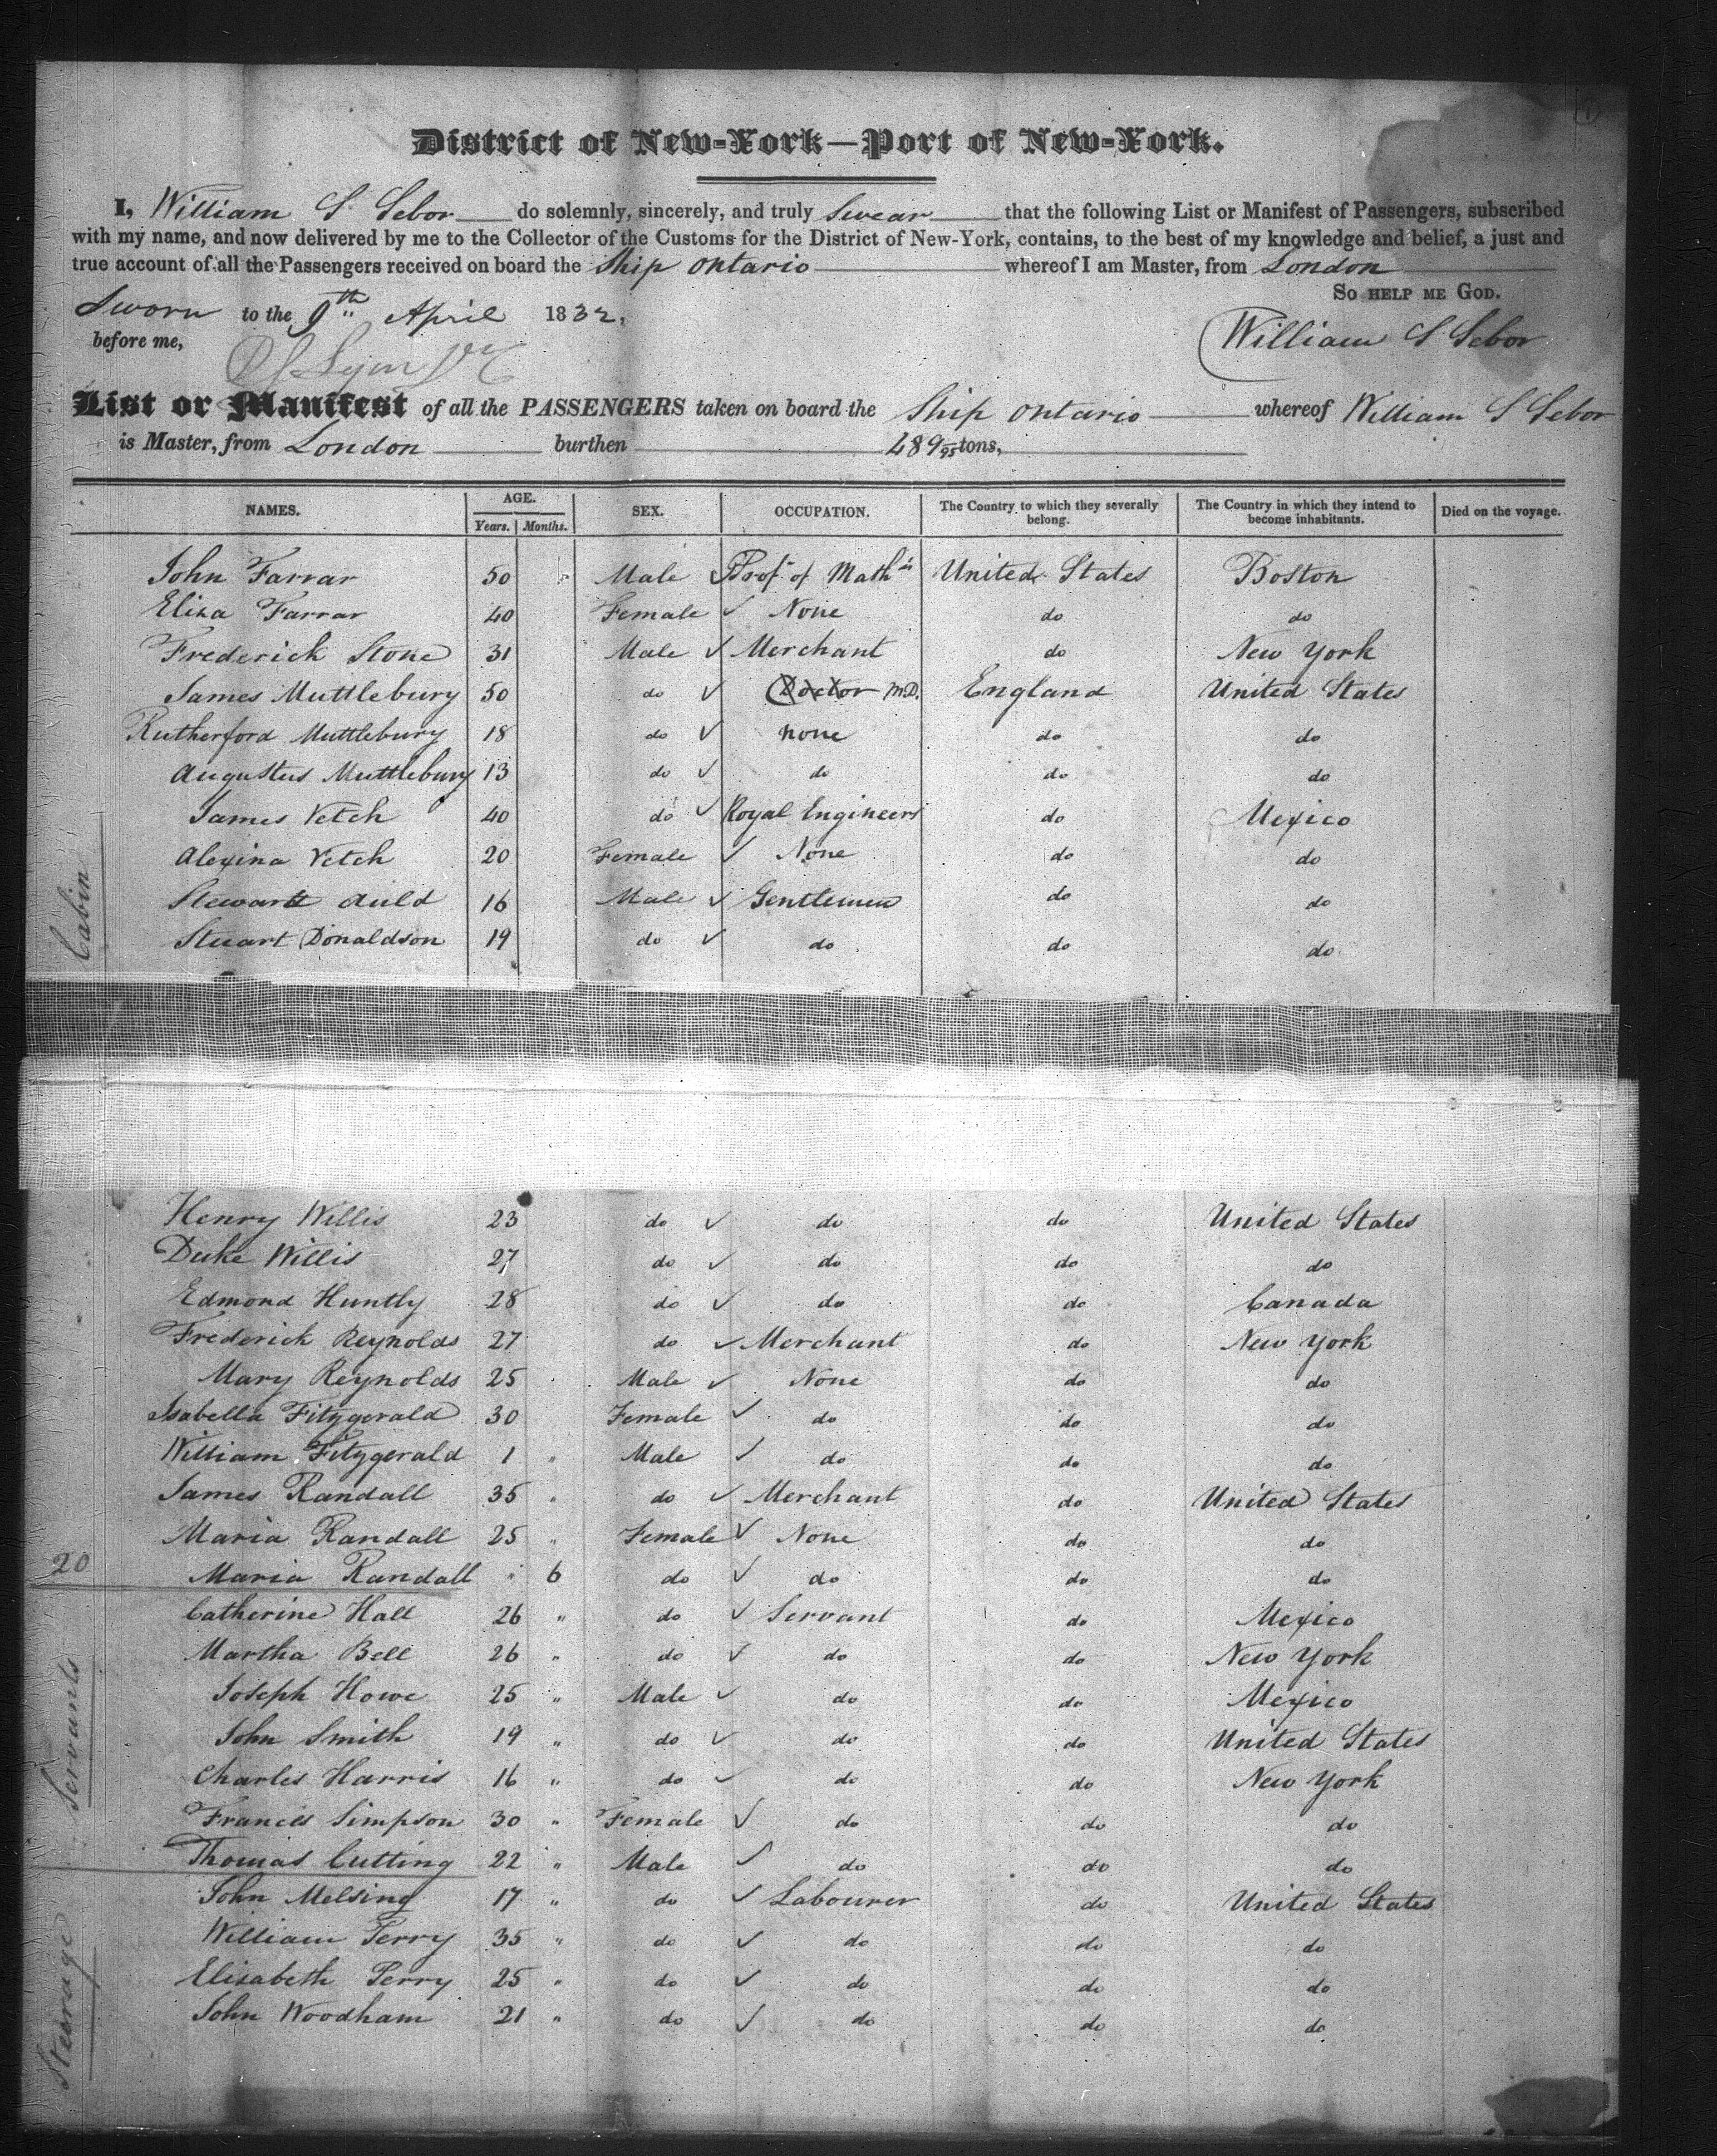 District of New-York—Port of New-York.
I, William S Sebor do solemnly, sincerely, and truly Swear that the following List or Manifest of Passengers, subscribed
with my name, and now delivered by me to the Collector of the Customs for the District of New-York, contains, to the best of my knowledge and belief, a just and
true account of all the Passengers received on board the Ship Ontario whereof I am Master, from London
So help me God.
Sworn to the 9th April 1832,
before me,
William S Sebor
List or Manifest of all the PASSENGERS taken on board the Ship Ontario whereof William S Sebor
is Master, from London burthen 489 95 tons,
NAMES. AGE. Years. Months. SEX. OCCUPATION. The Country to which they severally belong. The Country in which they intend to become inhabitants. Died on the voyage.
John Farrar 50 Male Prof. of Math's United States Boston
Eliza Farrar 40 Female None do do
Frederick Stone 31 Male Merchant do New York
James Muttlebury 50 do Doctor M.D. England United States
Rutherford Muttlebury 18 do none do do
Augustus Muttlebury 13 do do do do
James Vetch 40 do Royal Engineers do Mexico
Alexina Vetch 20 Female None do do
Stewart Auld 16 Male Gentlemen do do
Stuart Donaldson 19 do do do do
Cabin
Henry Willis 23 do do do United States
Duke Willis 27 do do do do
Edmond Huntly 28 do do do Canada
Frederick Reynolds 27 do Merchant do New York
Mary Reynolds 25 Male None do do
Isabella Fitzgerald 30 Female do do do
William Fitzgerald 1 " Male do do do
James Randall 35 " do Merchant do United States
Maria Randall 25 " Female None do do
20 Maria Randall " 6 do do do do
Catherine Hall 26 " do Servant do Mexico
Martha Bell 26 " do do do New York
Joseph Howe 25 " Male do do Mexico
John Smith 19 " do do do United States
Charles Harris 16 " do do do New York
Frances Simpson 30 " Female do do do
Thomas Cutting 22 " Male do do do
Servants
John Melsing 17 " do Labourer do United States
William Perry 35 " do do do do
Elisabeth Perry 25 " do do do do
John Woodham 21 " do do do do
Stearage